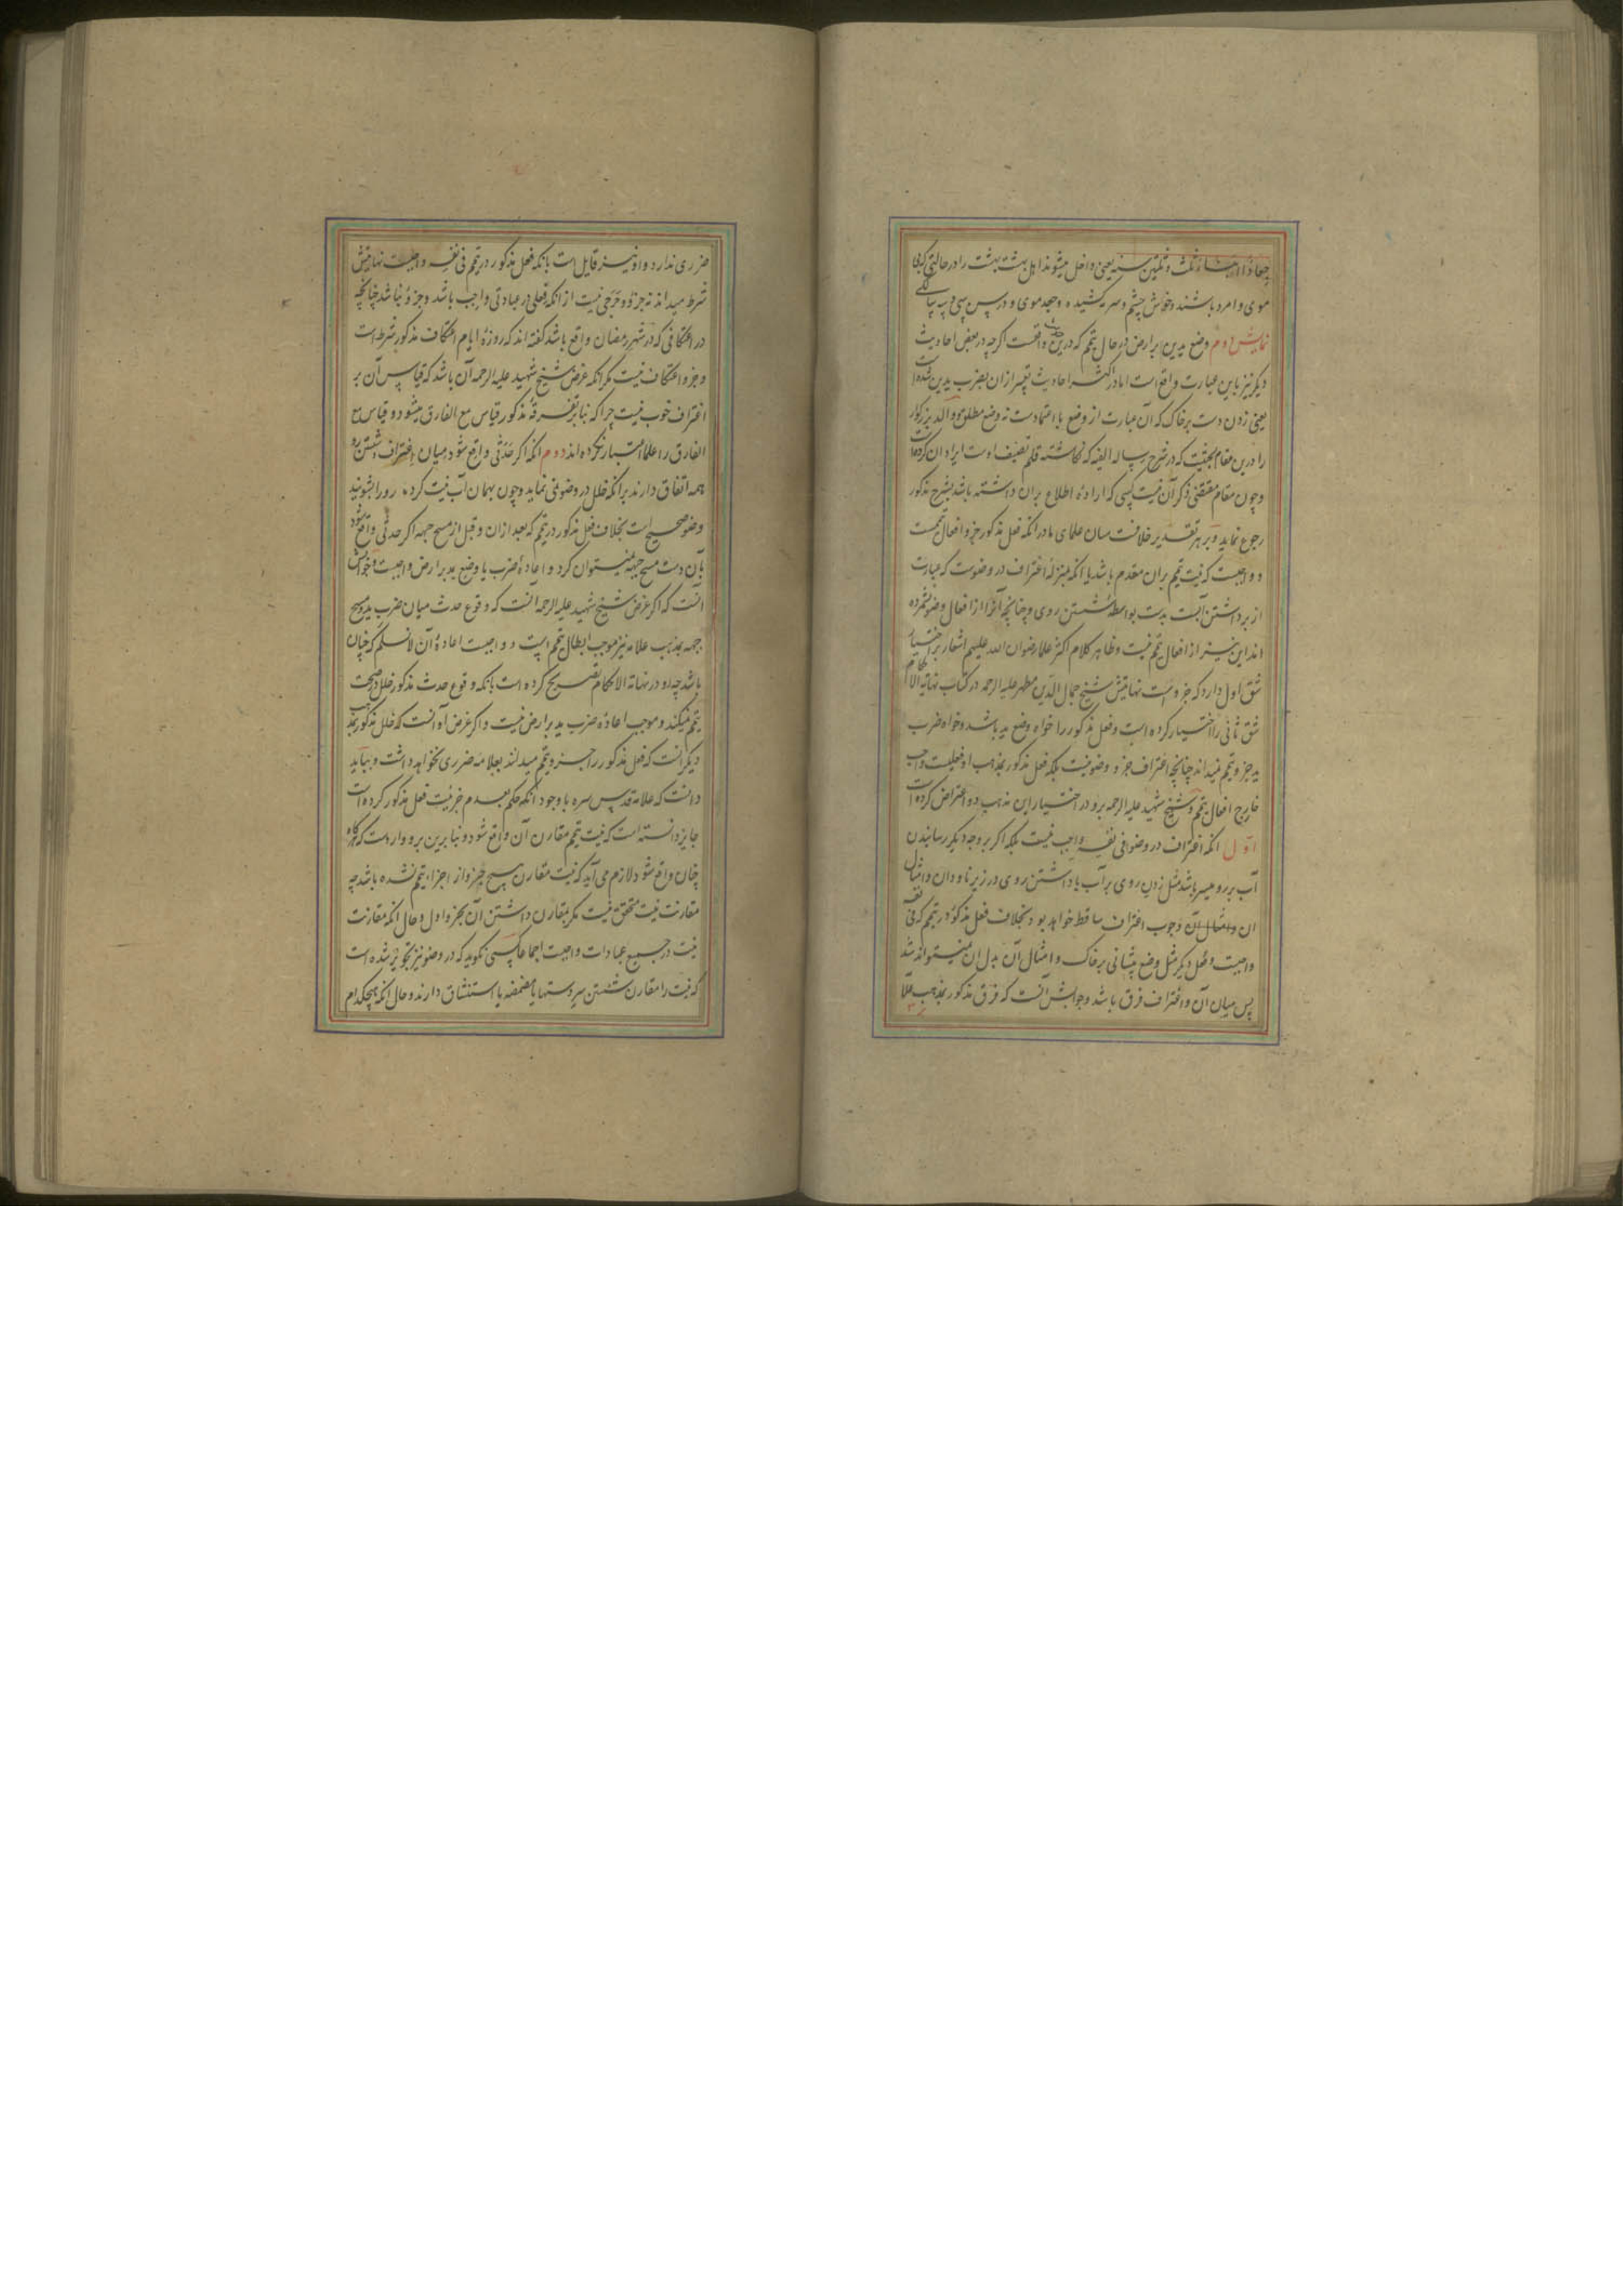 جعادا ابناء ثلث و ثلثین سنة یعنی داخل میشوند اهل بهشت بهشت را در حالتی که بی
موی و امرد باشند و خوش چشم و سرمه کشیده و جعد موی و در سن سی و سه سالگی
نمایش دوم وضع یدین بر ارض در حال تیمم که درین حدیث واقعست اگرچه در بعض احادیث
دیگر نیز باین عبارت واقع است اما در اکثر احادیث تعبیر از ان بضرب یدین شده است
یعنی زدن دست بر خاک که آن عبارت از وضع با اعتمادست نه وضع مطلق و والد بزرگوار
را درین مقام بحثیست که در شرح رساله الفیه که نگاشته قلم تصنیف اوست ایراد ان کرده است
و چون مقام مقتضی ذکر آن نیست کسی که اراده اطلاع بران داشته باشد بشرح مذکور
رجوع نماید و بر هر تقدیر خلافست میان علمای ما در انکه فعل مذکور جزو افعال تیمست
و واجبست که نیت تیمم بران مقدم باشد یا انکه بمنزله اغتراف در وضوست که عبارت
از برداشتن آبست بدست بواسطه شستن روی و چنانچه آنرا از افعال وضو نشمرده
اند این نیز از افعال تیمم نیست و ظاهر کلام اکثر علما رضوان الله علیهم اشعار بر اختیار
شق اول دارد که جزوست نهایتش شیخ جمال الدین مطهر علیه الرحمه در کتاب نهایة الاحکام
شق ثانی را اختیار کرده است و فعل مذکور را خواه وضع ید باشد و خواه ضرب
ید جزو تیمم نمیداند چنانچه اغتراف جزو وضو نیست بلکه فعل مذکور بمذهب او فعلیست واجب
خارج افعال تیمم و شیخ شهید علیه الرحمه برو در اختیار این مذهب دو اعتراض کرده است
اول انکه اغتراف در وضو فی نفسه واجب نیست بلکه اگر بر وجه دیگر رسانیدن
آب بر رو میسر باشد مثل زدن روی بر آب یا داشتن روی در زیر ناودان و امثال
ان و امثال آن وجوب اغتراف ساقط خواهد بود بخلاف فعل مذکور در تیمم که فی نفسه
واجبست و فعل دیگر مثل وضع پیشانی بر خاک و امثال آن بدل ان نمیتواند شد
پس میان آن و اغتراف فرق باشد و جوابش آنست که فرق مذکور بمذهب علا
ضرری ندارد و او نیز قایل است بانکه فعل مذکور در تیمم فی نفسه واجبست نهایتش
شرط میداند نه جزو و حرجی نیست از انکه فعلی در عبادتی واجب باشد و جزو نباشد چنانچه
در اعتکافی که در شهر رمضان واقع باشد گفته اند که روزه ایام اعتکاف مذکور شرط است
و جزو اعتکاف نیست مگر انکه غرض شیخ شهید علیه الرحمه آن باشد که قیاس آن بر
اغتراف خوب نیست چرا که بنا بر تفرقه مذکور قیاس مع الفارق میشود و قیاس مع
الفارق را علما اعتبار نکرده اند دوم انکه اگر حدثی واقع شود میان اغتراف و شستن رو
همه اتفاق دارند برانکه خلل در وضو نمی نماید و چون بهمان آب نیت کرده رو را بشویند
وضو صحیح است بخلاف فعل مذکور در تیمم که بعد ازان و قبل از مسح جبهه اگر حدثی واقع شود
بآن دست مسح جبهه نمیتوان کرد و اعاده ضرب یا وضع ید بر ارض واجبست و جوابش
آنست که اگر غرض شیخ شهید علیه الرحمه انست که وقوع حدث میان ضرب ید و مسح
جبهه بمذهب علامه نیز موجب ابطال تیمم است و واجبست اعاده آن لا نسلم که چنان
باشد چه او در نهایة الاحکام تصریح کرده است بانکه وقوع حدث مذکور خلل در صحت
تیمم نمیکند و موجب اعاده ضرب ید بر ارض نیست و اگر غرض او آنست که خلل مذکور بمذهب
دیگرانست که فعل مذکور را جزو تیمم میدانند بعلامه ضرری نخواهد داشت و بباید
دانست که علامه قدس سره با وجود آنکه حکم بعدم جزئیت فعل مذکور کرده است
جایز دانسته است که نیت تیمم مقارن آن واقع شود و بنا برین برو وارد است که هرگاه
چنان واقع شود لازم می آید که نیت مقارن هیچ جزو از اجزاء تیمم نشده باشد چه
مقارنت نیت متحقق نیست مگر بمقارن داشتن آن بجزو اول و حال انکه مقارنت
نیت در جمیع عبادات واجبست اجماعا کسی نگوید که در وضو نیز تجویز شده است
که نیت را مقارن شستن سر دستها یا مضمضه یا استنشاق دارند و حال انکه هیچکدام